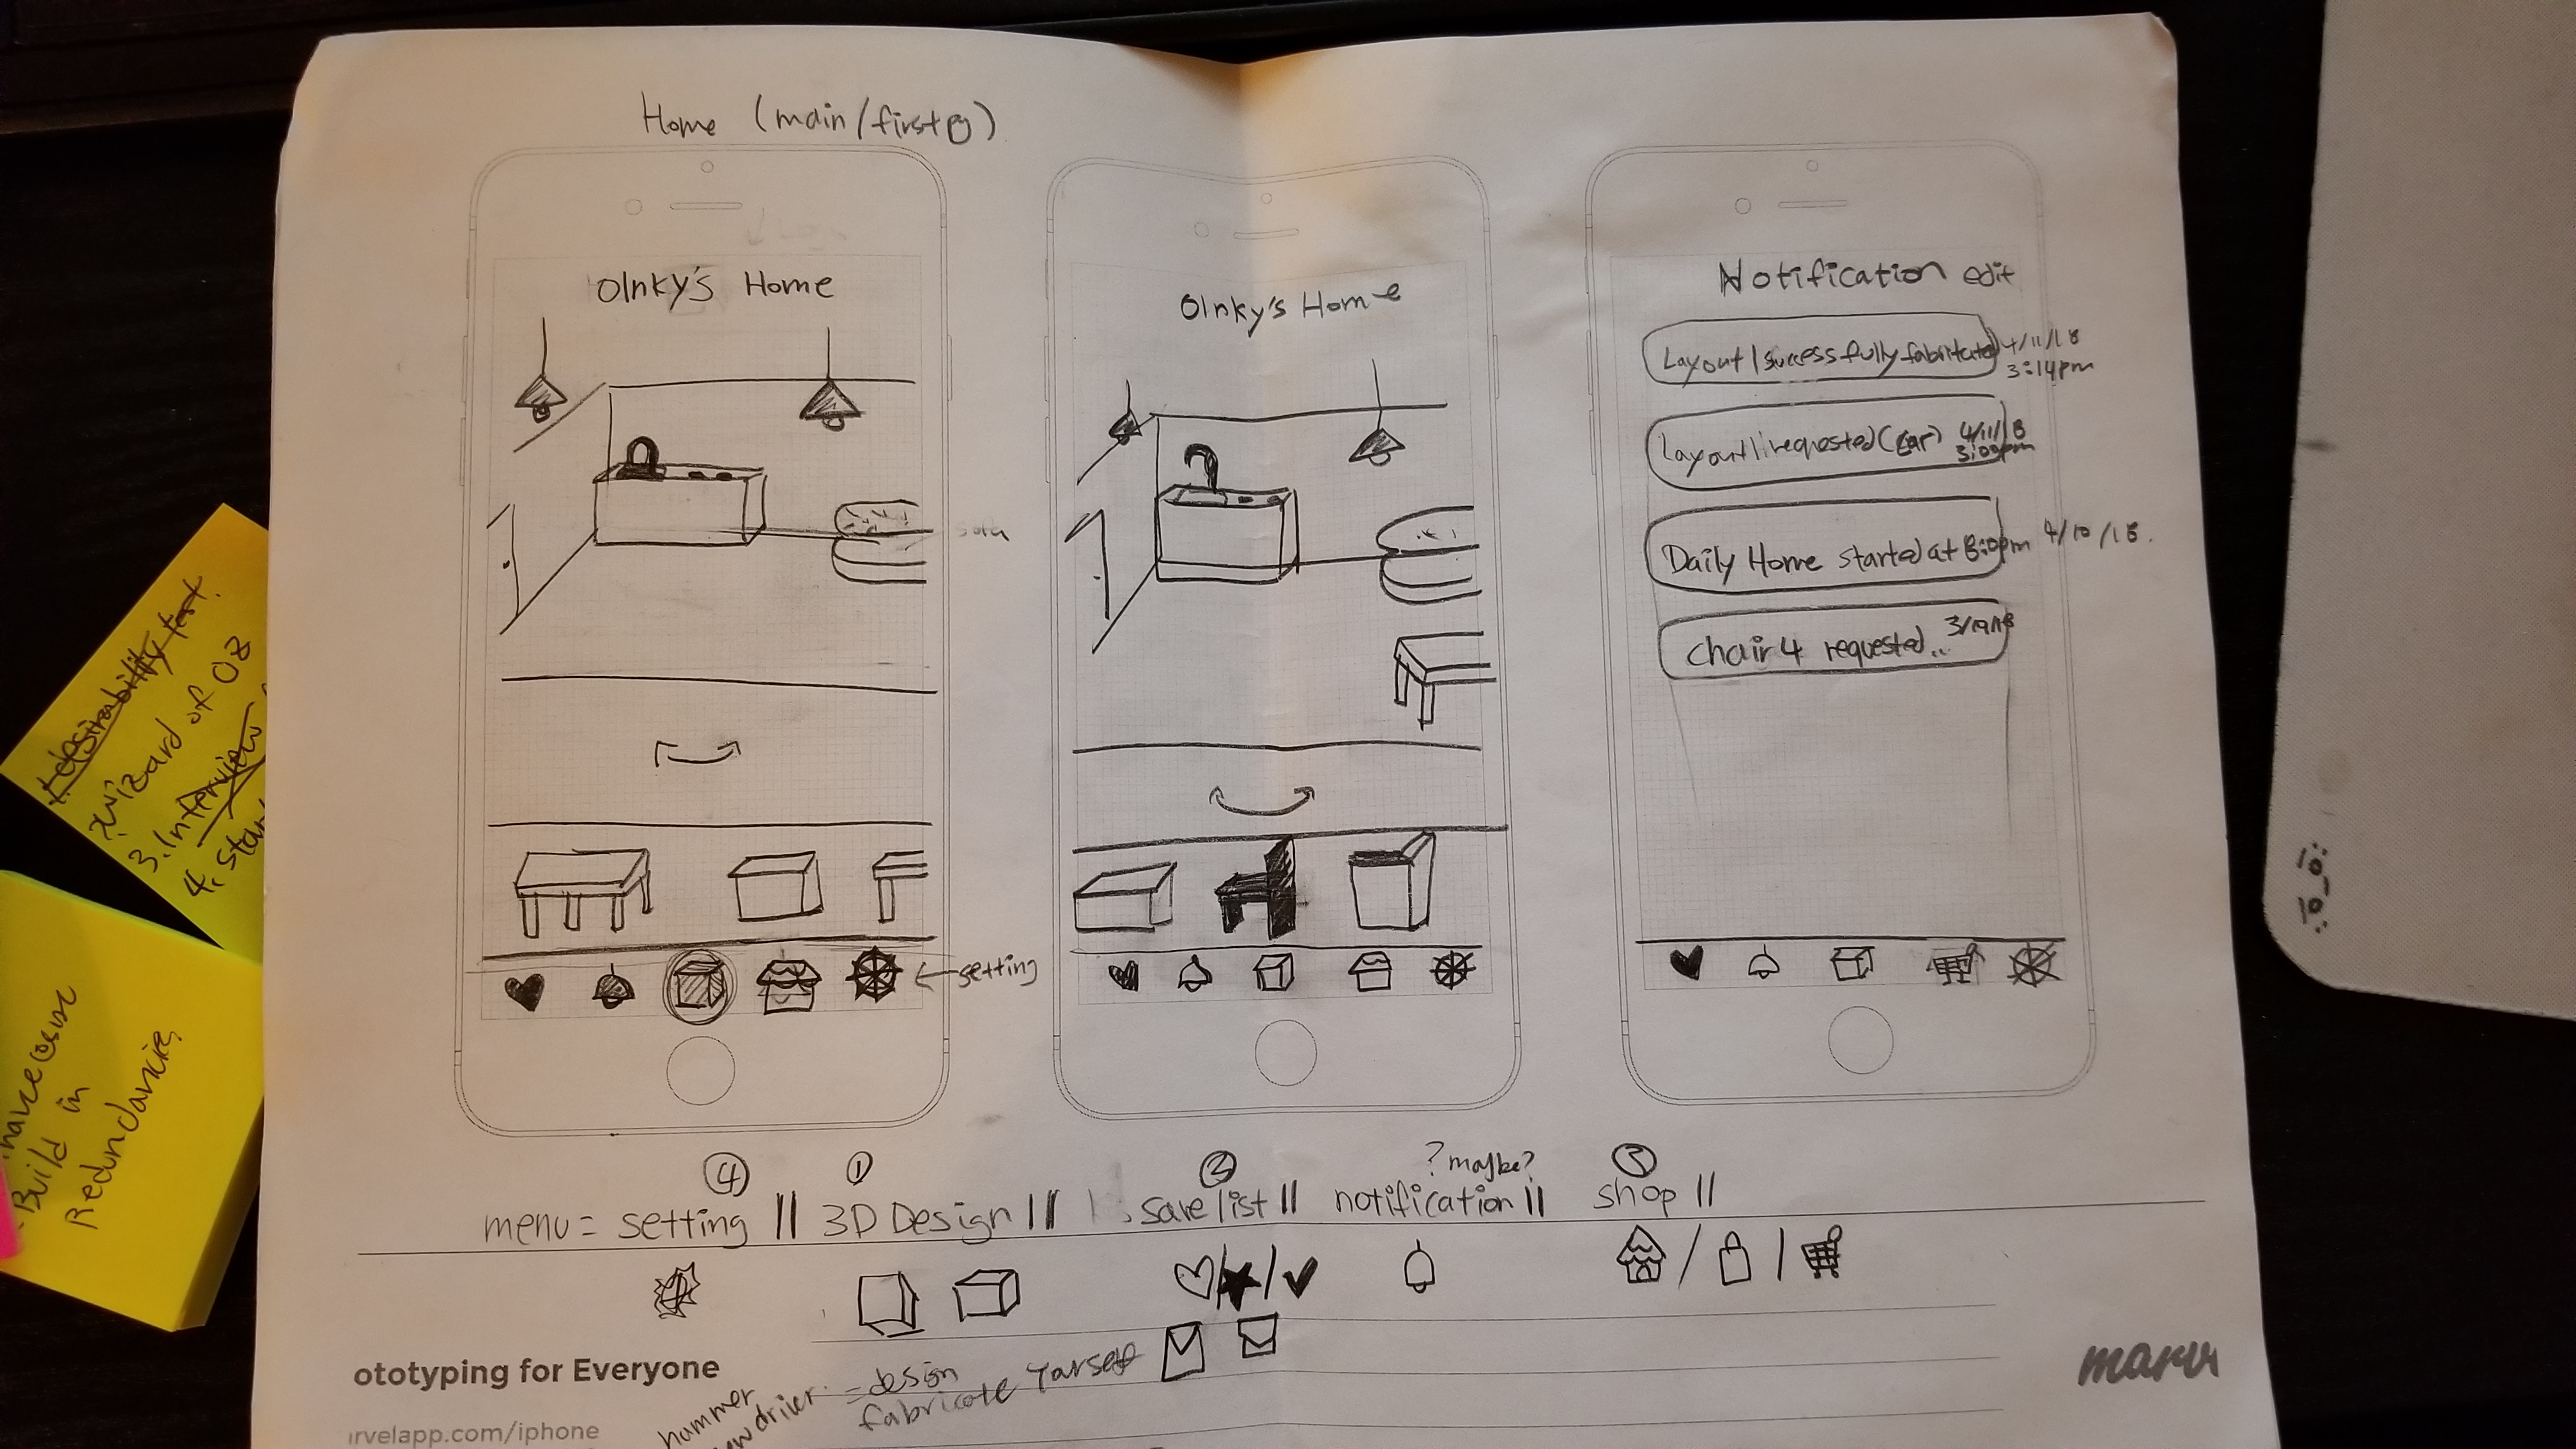 Build in
Redundancies
1. desirability test.
Wizard of Oz
3. Interview
4.
Home (main/first)
Olnky's Home
←setting
Olnky's Home
Notification edit
Layout 1 sucessfully fabricated 4/11/18
3:14pm
Layout 1 requested (ear) 4/11/18
3:00pm
Daily Home started at 8:10pm 4/10/18.
Chair 4 requested..
④ ① ② ? maybe? ③
menu = setting || 3D Design || save list || notification || shop ||
hammer
driver = design
fabricate
ototyping for Everyone
rvelapp.com/iphone
marv